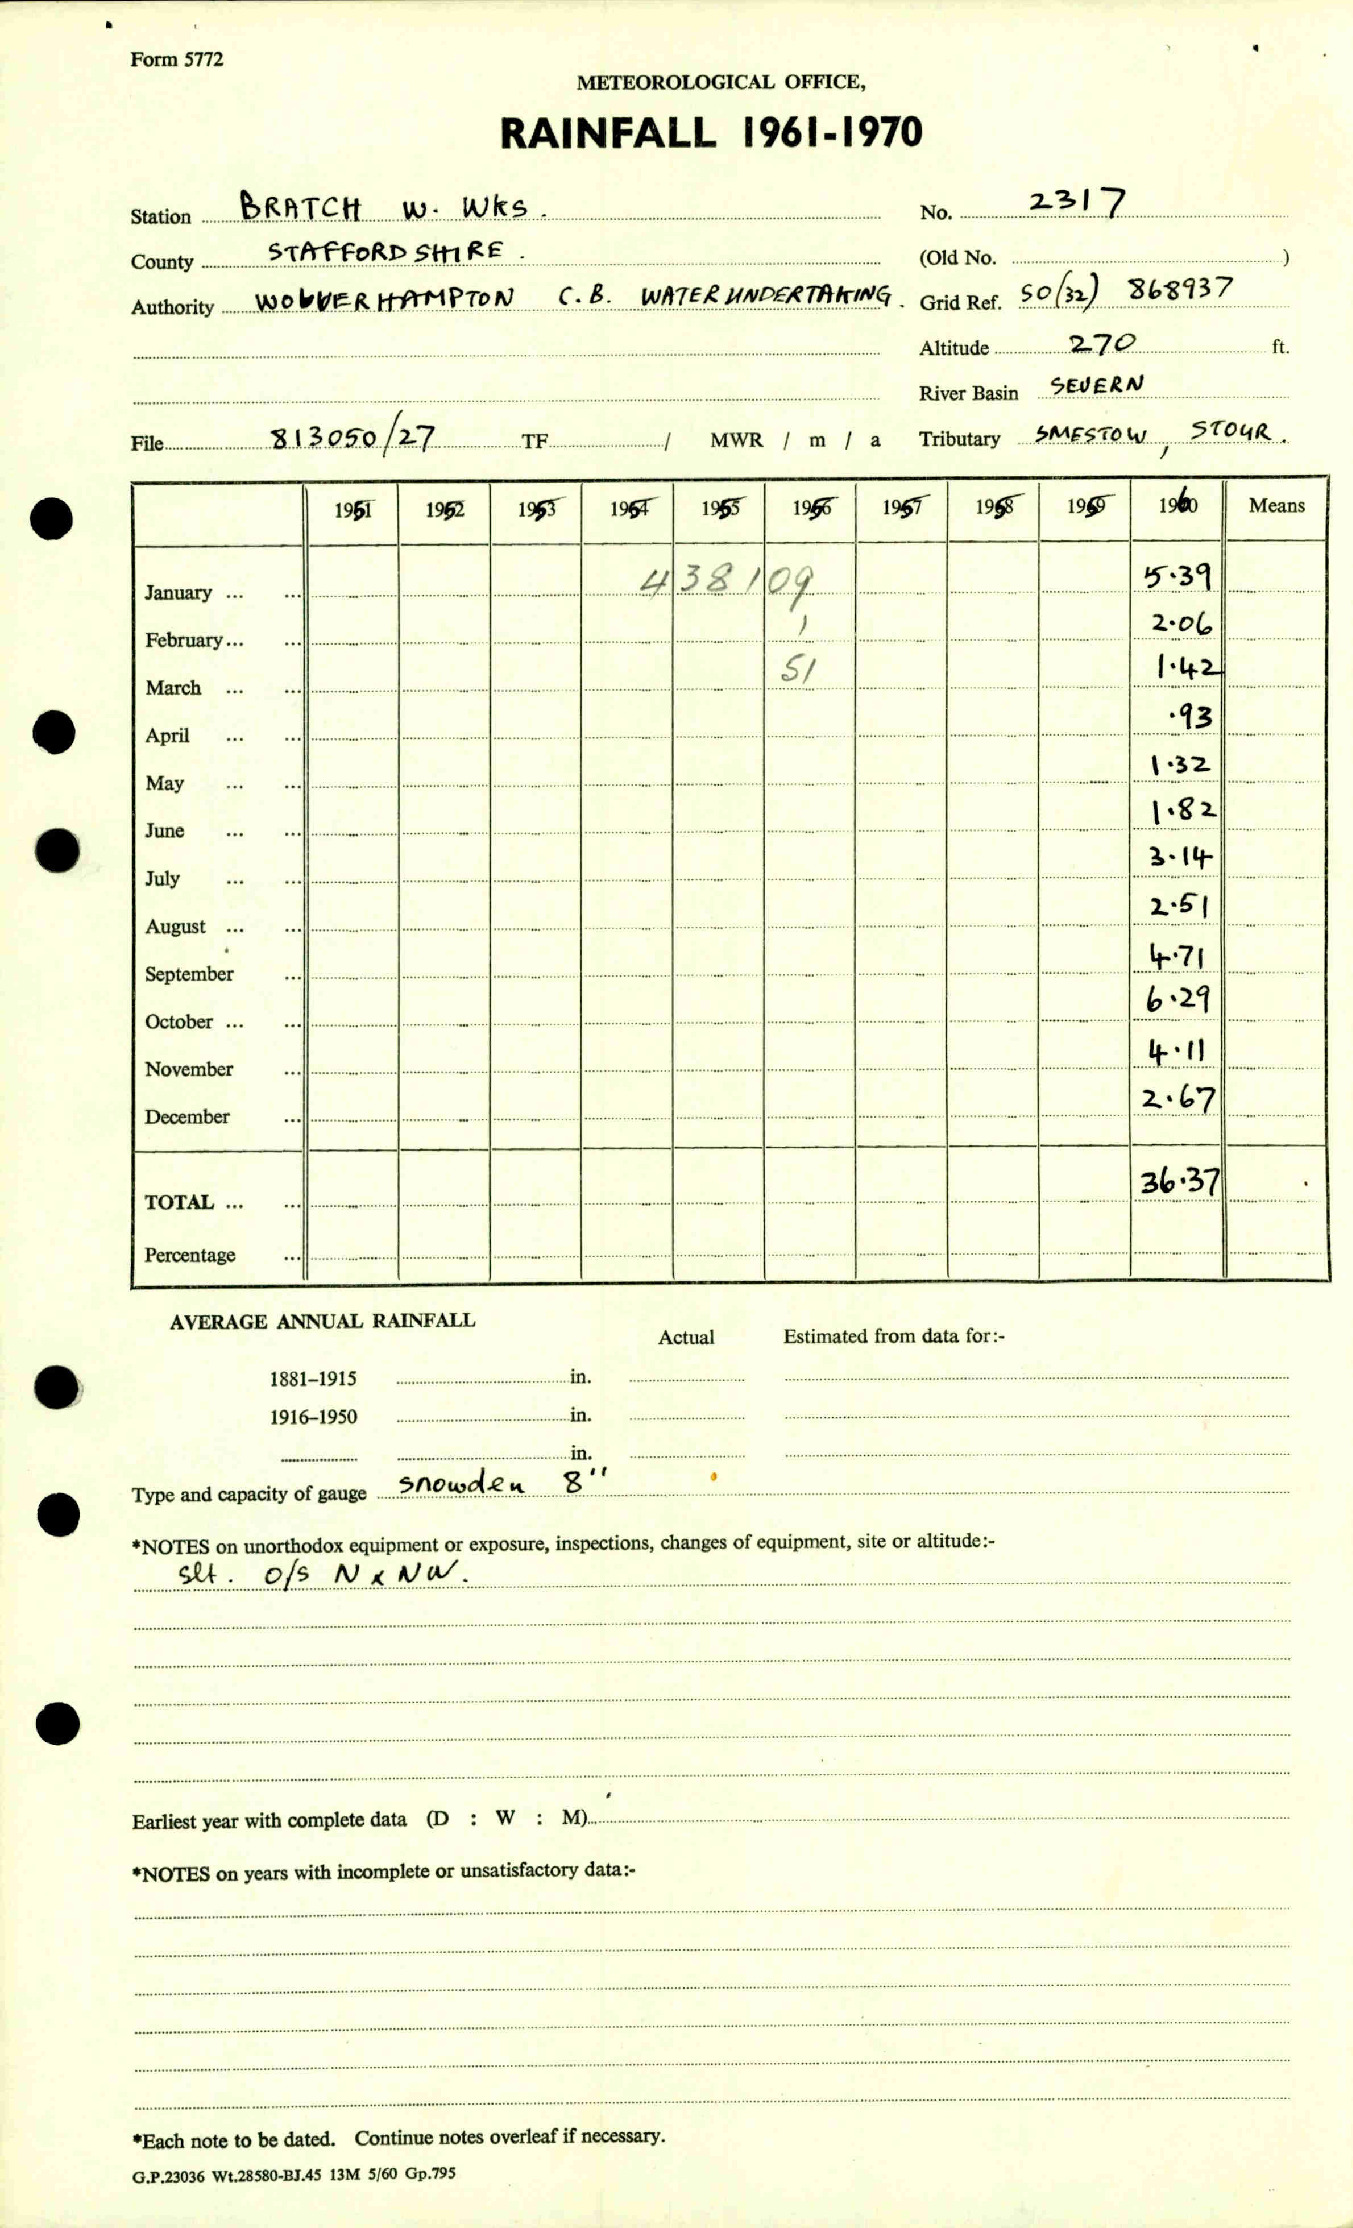 Form 5772
METEOROLOGICAL OFFICE,
RAINFALL 1961-1970
Station BRATCH W. WKS. No. 2317
County STAFFORDSHIRE. (Old No. )
Authority WOLVERHAMPTON C.B. WATER UNDERTAKING. Grid Ref. SO(32) 868937
Altitude 270 ft.
River Basin SEVERN
File 813050/27 TF / MWR / m / a Tributary SMESTOW, STOUR.
1951 1952 1953 1954 1955 1956 1957 1958 1959 1960 Means
January ... ... 438109 5.39
February ... ... 1 2.06
March ... ... 51 1.42
April ... ... .93
May ... ... 1.32
June ... ... 1.82
July ... ... 3.14
August ... ... 2.51
September ... 4.71
October ... ... 6.29
November ... 4.11
December ... 2.67
TOTAL ... ... 36.37
Percentage ...
AVERAGE ANNUAL RAINFALL
Actual Estimated from data for:-
1881-1915 in.
1916-1950 in.
in.
Type and capacity of gauge Snowden 8"
*NOTES on unorthodox equipment or exposure, inspections, changes of equipment, site or altitude:-
Slt. o/s N & NW.
Earliest year with complete data (D : W : M)
*NOTES on years with incomplete or unsatisfactory data:-
*Each note to be dated. Continue notes overleaf if necessary.
G.P.23036 Wt.28580-BJ.45 13M 5/60 Gp.795